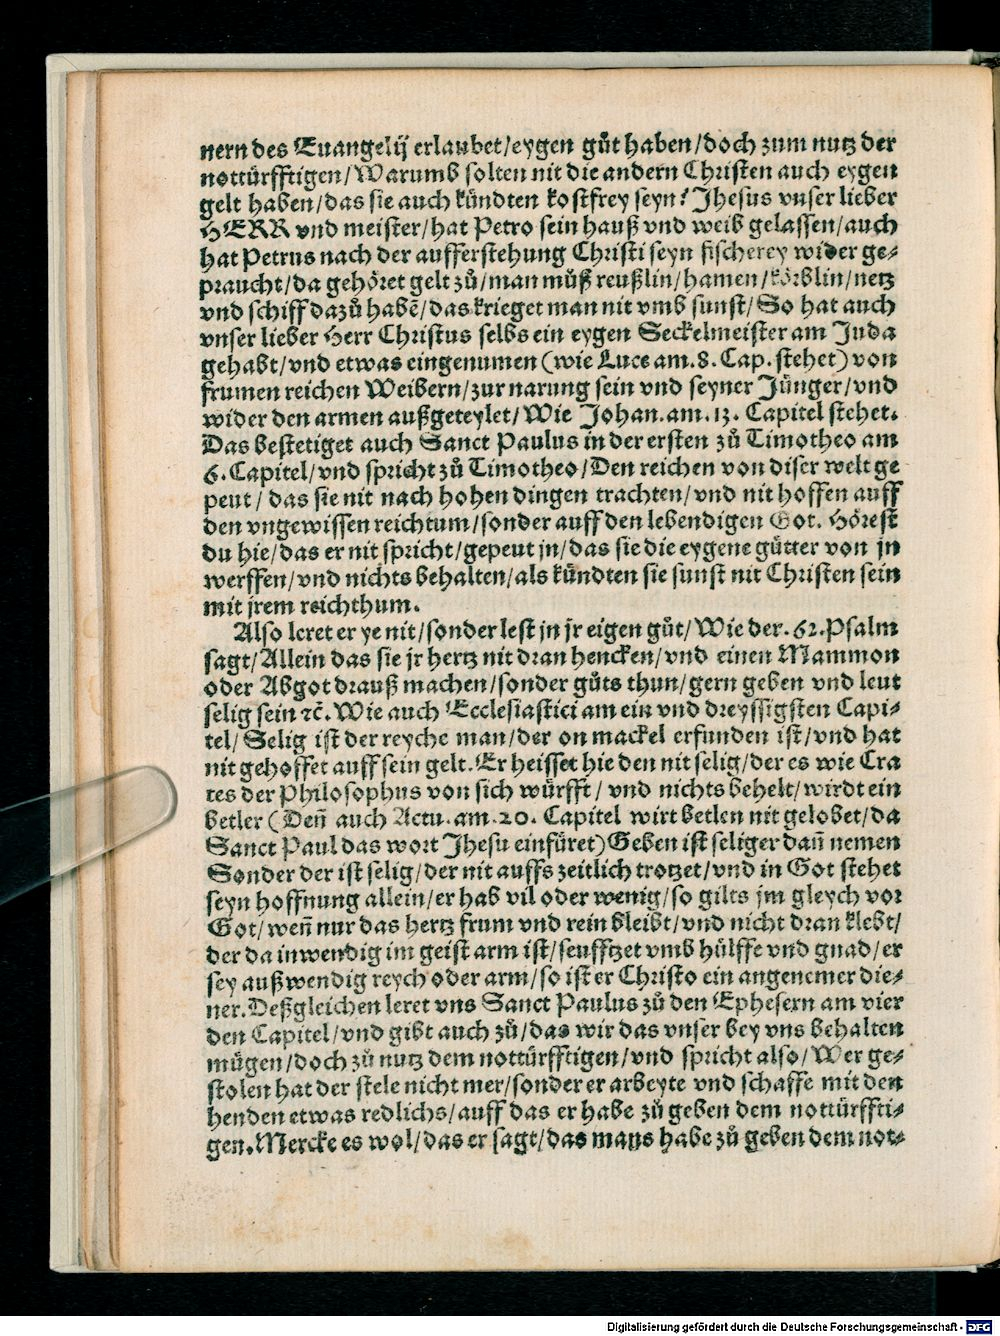 nern des Euangelij erlaubet/eygen gůt haben/doch zum nutz der
nottürfftigen/Warumb solten nit die andern Christen auch eygen
gelt haben/das sie auch kündten kostfrey seyn? Jhesus vnser lieber
HERR vnd meister/hat Petro sein hauß vnd weib gelassen/auch
hat Petrus nach der aufferstehung Christi seyn fischerey wider ge⸗
praucht/da gehöret gelt zů/man můß reußlin/hamen/körblin/netz
vnd schiff dazů habē/das krieget man nit vmb sunst/So hat auch
vnser lieber Herr Christus selbs ein eygen Seckelmeister am Juda
gehabt/vnd etwas eingenumen (wie Luce am.8.Cap.stehet) von
frumen reichen Weibern/zur narung sein vnd seyner Jünger/vnd
wider den armen außgeteylet/Wie Johan.am.13. Capitel stehet.
Das bestetiget auch Sanct Paulus in der ersten zů Timotheo am
6.Capitel/vnd spricht zů Timotheo/Den reichen von diser welt ge
peut/das sie nit nach hohen dingen trachten/vnd nit hoffen auff
den vngewissen reichtum/sonder auff den lebendigen Got. Hörest
du hie/das er nit spricht/gepeut jn/das sie die eygene gütter von jn
werffen/vnd nichts behalten/als kündten sie sunst nit Christen sein
mit jrem reichthum.
Also leret er ye nit/sonder lest jn jr eigen gůt/Wie der.62.Psalm
sagt/Allein das sie jr hertz nit dran hencken/vnd einen Mammon
oder Abgot drauß machen/sonder gůts thun/gern geben vnd leut
selig sein ⁊c̄.Wie auch Ecclesiastici am ein vnd dreyssigsten Capi⸗
tel/Selig ist der reyche man/der on mackel erfunden ist/vnd hat
nit gehoffet auff sein gelt.Er heisset hie den nit selig/der es wie Cra
tes der Philosophus von sich würfft/vnd nichts behelt/wirdt ein
betler (Deñ auch Actu.am.20. Capitel wirt betlen nit gelobet/da
Sanct Paul das wort Jhesu einfüret)Geben ist seliger dañ nemen
Sonder der ist selig/der nit auffs zeitlich trotzet/vnd in Got stehet
seyn hoffnung allein/er hab vil oder wenig/so gilts jm gleych vor
Got/weñ nur das hertz frum vnd rein bleibt/vnd nicht dran klebt/
der da inwendig im geist arm ist/seufftzet vmb hülffe vnd gnad/er
sey außwendig reych oder arm/so ist er Christo ein angenemer die⸗
ner.Deßgleichen leret vns Sanct Paulus zů den Ephesern am vier
den Capitel/vnd gibt auch zů/das wir das vnser bey vns behalten
mügen/doch zů nutz dem nottürfftigen/vnd spricht also/Wer ge⸗
stolen hat der stele nicht mer/sonder er arbeyte vnd schaffe mit den
henden etwas redlichs/auff das er habe zů geben dem nottürffti⸗
gen.Mercke es wol/das er sagt/das mans habe zů geben dem not⸗
Digitalisierung gefördert durch die Deutsche Forschungsgemeinschaft - DFG